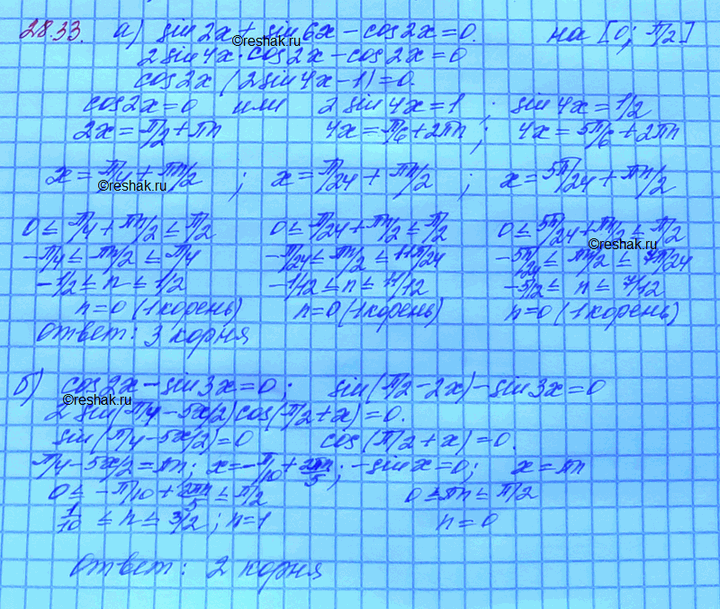 28.33. а) sin2x + sin6x − cos2x = 0. на [0; π/2]
2sin4x·cos2x − cos2x = 0
cos2x (2sin4x − 1) = 0.
cos2x = 0 или 2sin4x = 1 ; sin4x = 1/2
2x = π/2 + πn 4x = π/6 + 2πn ; 4x = 5π/6 + 2πn
x = π/4 + πn/2 ; x = π/24 + πn/2 ; x = 5π/24 + πn/2
0 ≤ π/4 + πn/2 ≤ π/2 0 ≤ π/24 + πn/2 ≤ π/2 0 ≤ 5π/24 + πn/2 ≤ π/2
−π/4 ≤ πn/2 ≤ π/4 −π/24 ≤ πn/2 ≤ 11π/24 −5π/24 ≤ πn/2 ≤ 7π/24
−1/2 ≤ n ≤ 1/2 −1/12 ≤ n ≤ 11/12 −5/2 ≤ n ≤ 7/12
n=0 (1 корень) n=0 (1 корень) n=0 (1 корень)
ответ: 3 корня
б) cos2x − sin3x = 0 ; sin(π/2 − 2x) − sin3x = 0
2sin(π/4 − 5x/2)cos(π/2 + x) = 0.
sin(π/4 − 5x/2) = 0 cos(π/2 + x) = 0.
π/4 − 5x/2 = πn ; x = −π/10 + 2πn/5 ; −sinx = 0 ; x = πn
0 ≤ −π/10 + 2πn/5 ≤ π/2 0 ≤ πn ≤ π/2
1/10 ≤ n ≤ 3/2 ; n=1 n=0
ответ: 2 корня
©reshak.ru
©reshak.ru
©reshak.ru
©reshak.ru